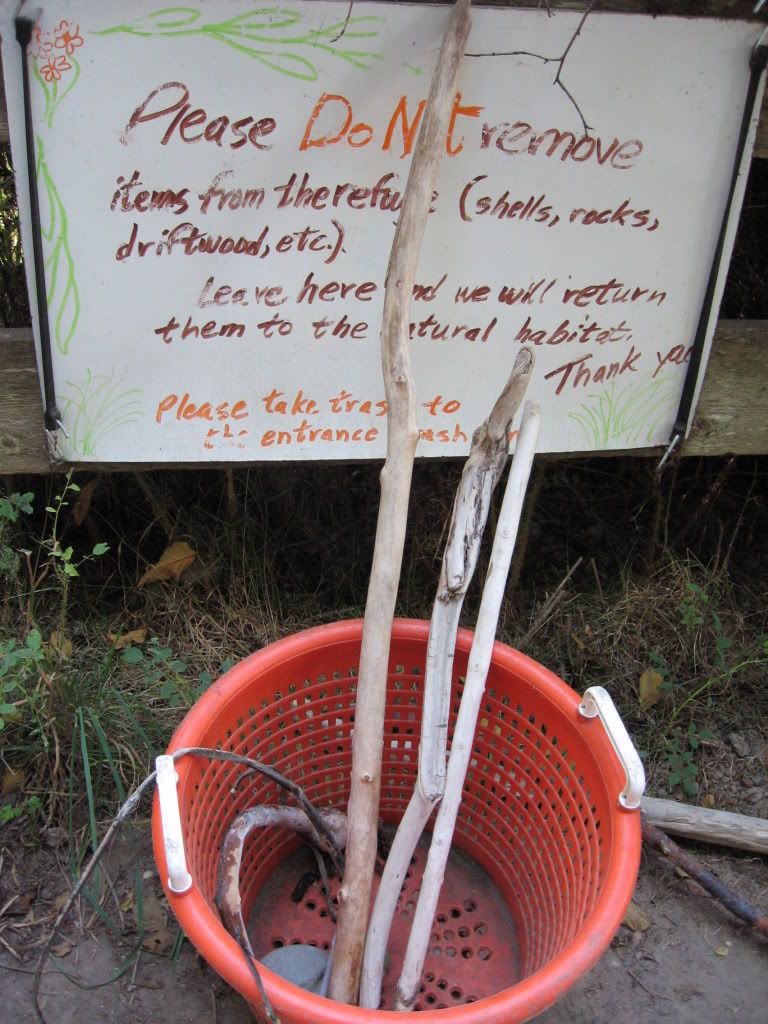 Please Do Not remove
items from the refuge (shells, rocks,
driftwood, etc.).
Leave here and we will return
them to the natural habitat.
Thank you
Please take trash to
the entrance trash